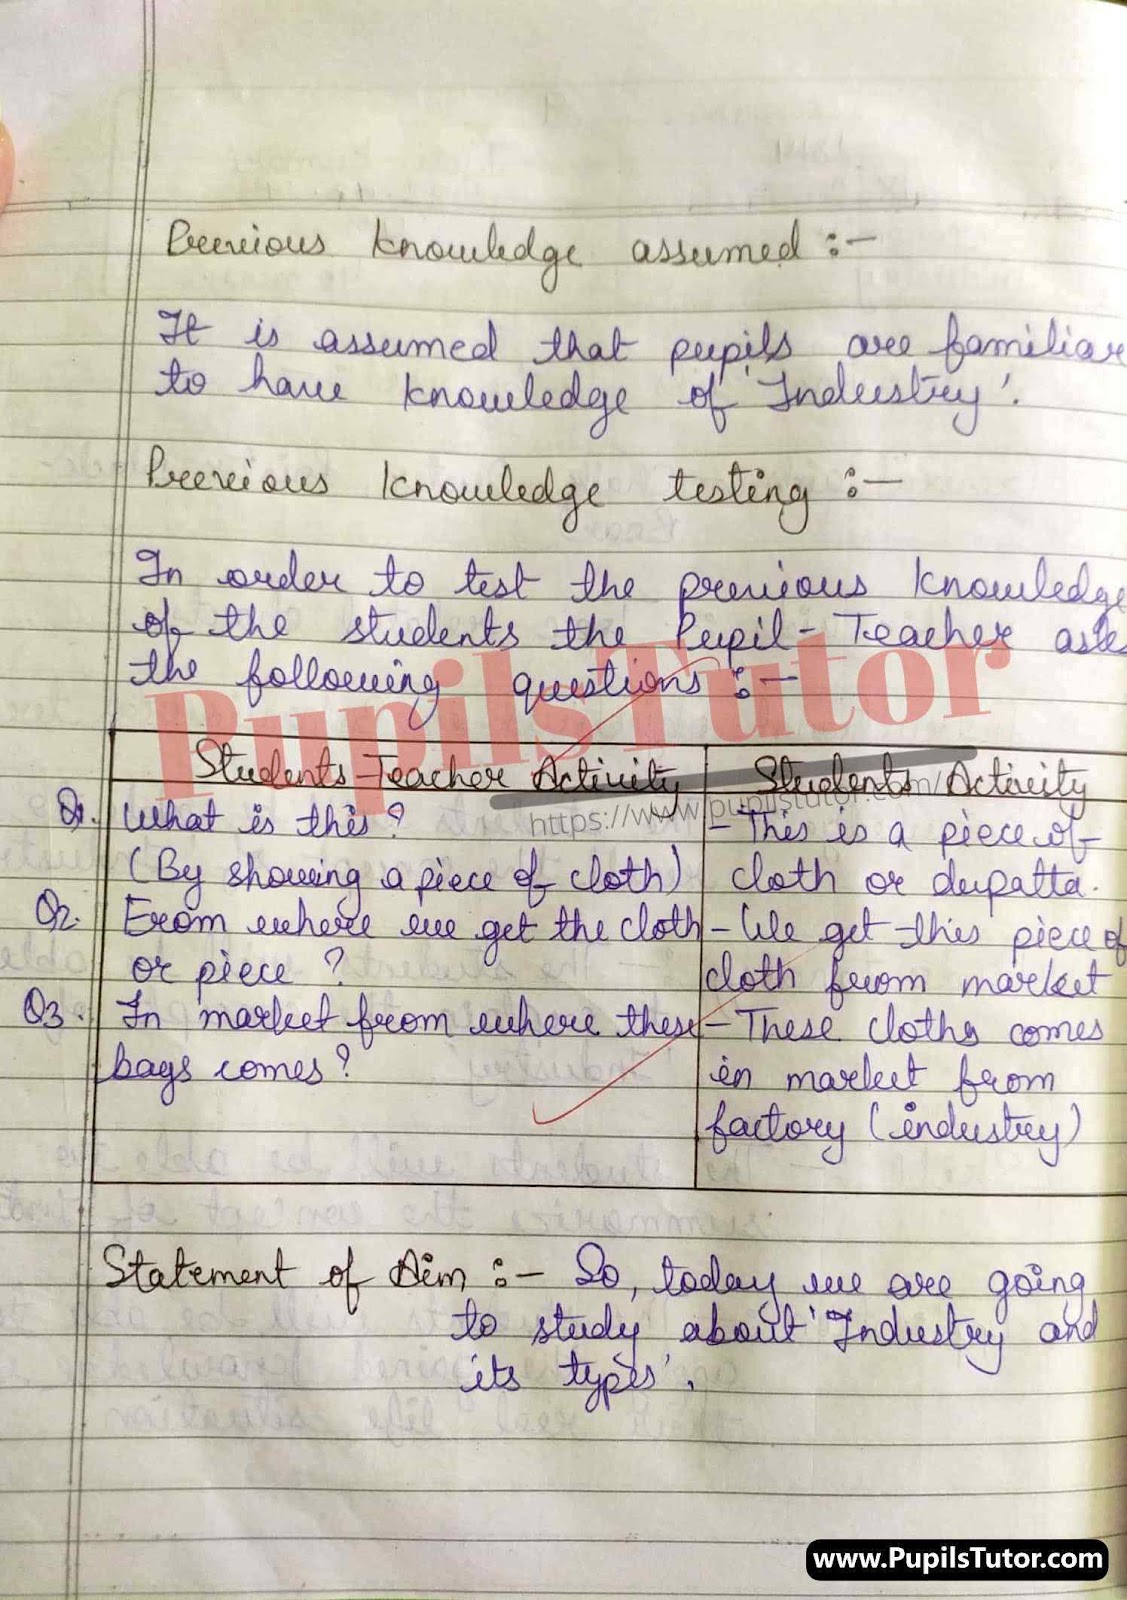 Previous knowledge assumed :-
It is assumed that pupils are familiar
to have knowledge of 'Industry'.
Previous knowledge testing :-
In order to test the previous knowledge
of the students the Pupil-Teacher asks
the following questions :-
PupilsTutor
https://www.pupilstutor.com/
Students-Teacher Activity
Students Activity
Q1. What is this?
(By showing a piece of cloth)
- This is a piece of
cloth or dupatta.
Q2. From where we get the cloth
or piece ?
- We get this piece of
cloth from market
Q3. In market from where these
bags comes?
- These cloths comes
in market from
factory (industry)
Statement of Aim :- So, today we are going
to study about 'Industry and
its types'.
www.PupilsTutor.com